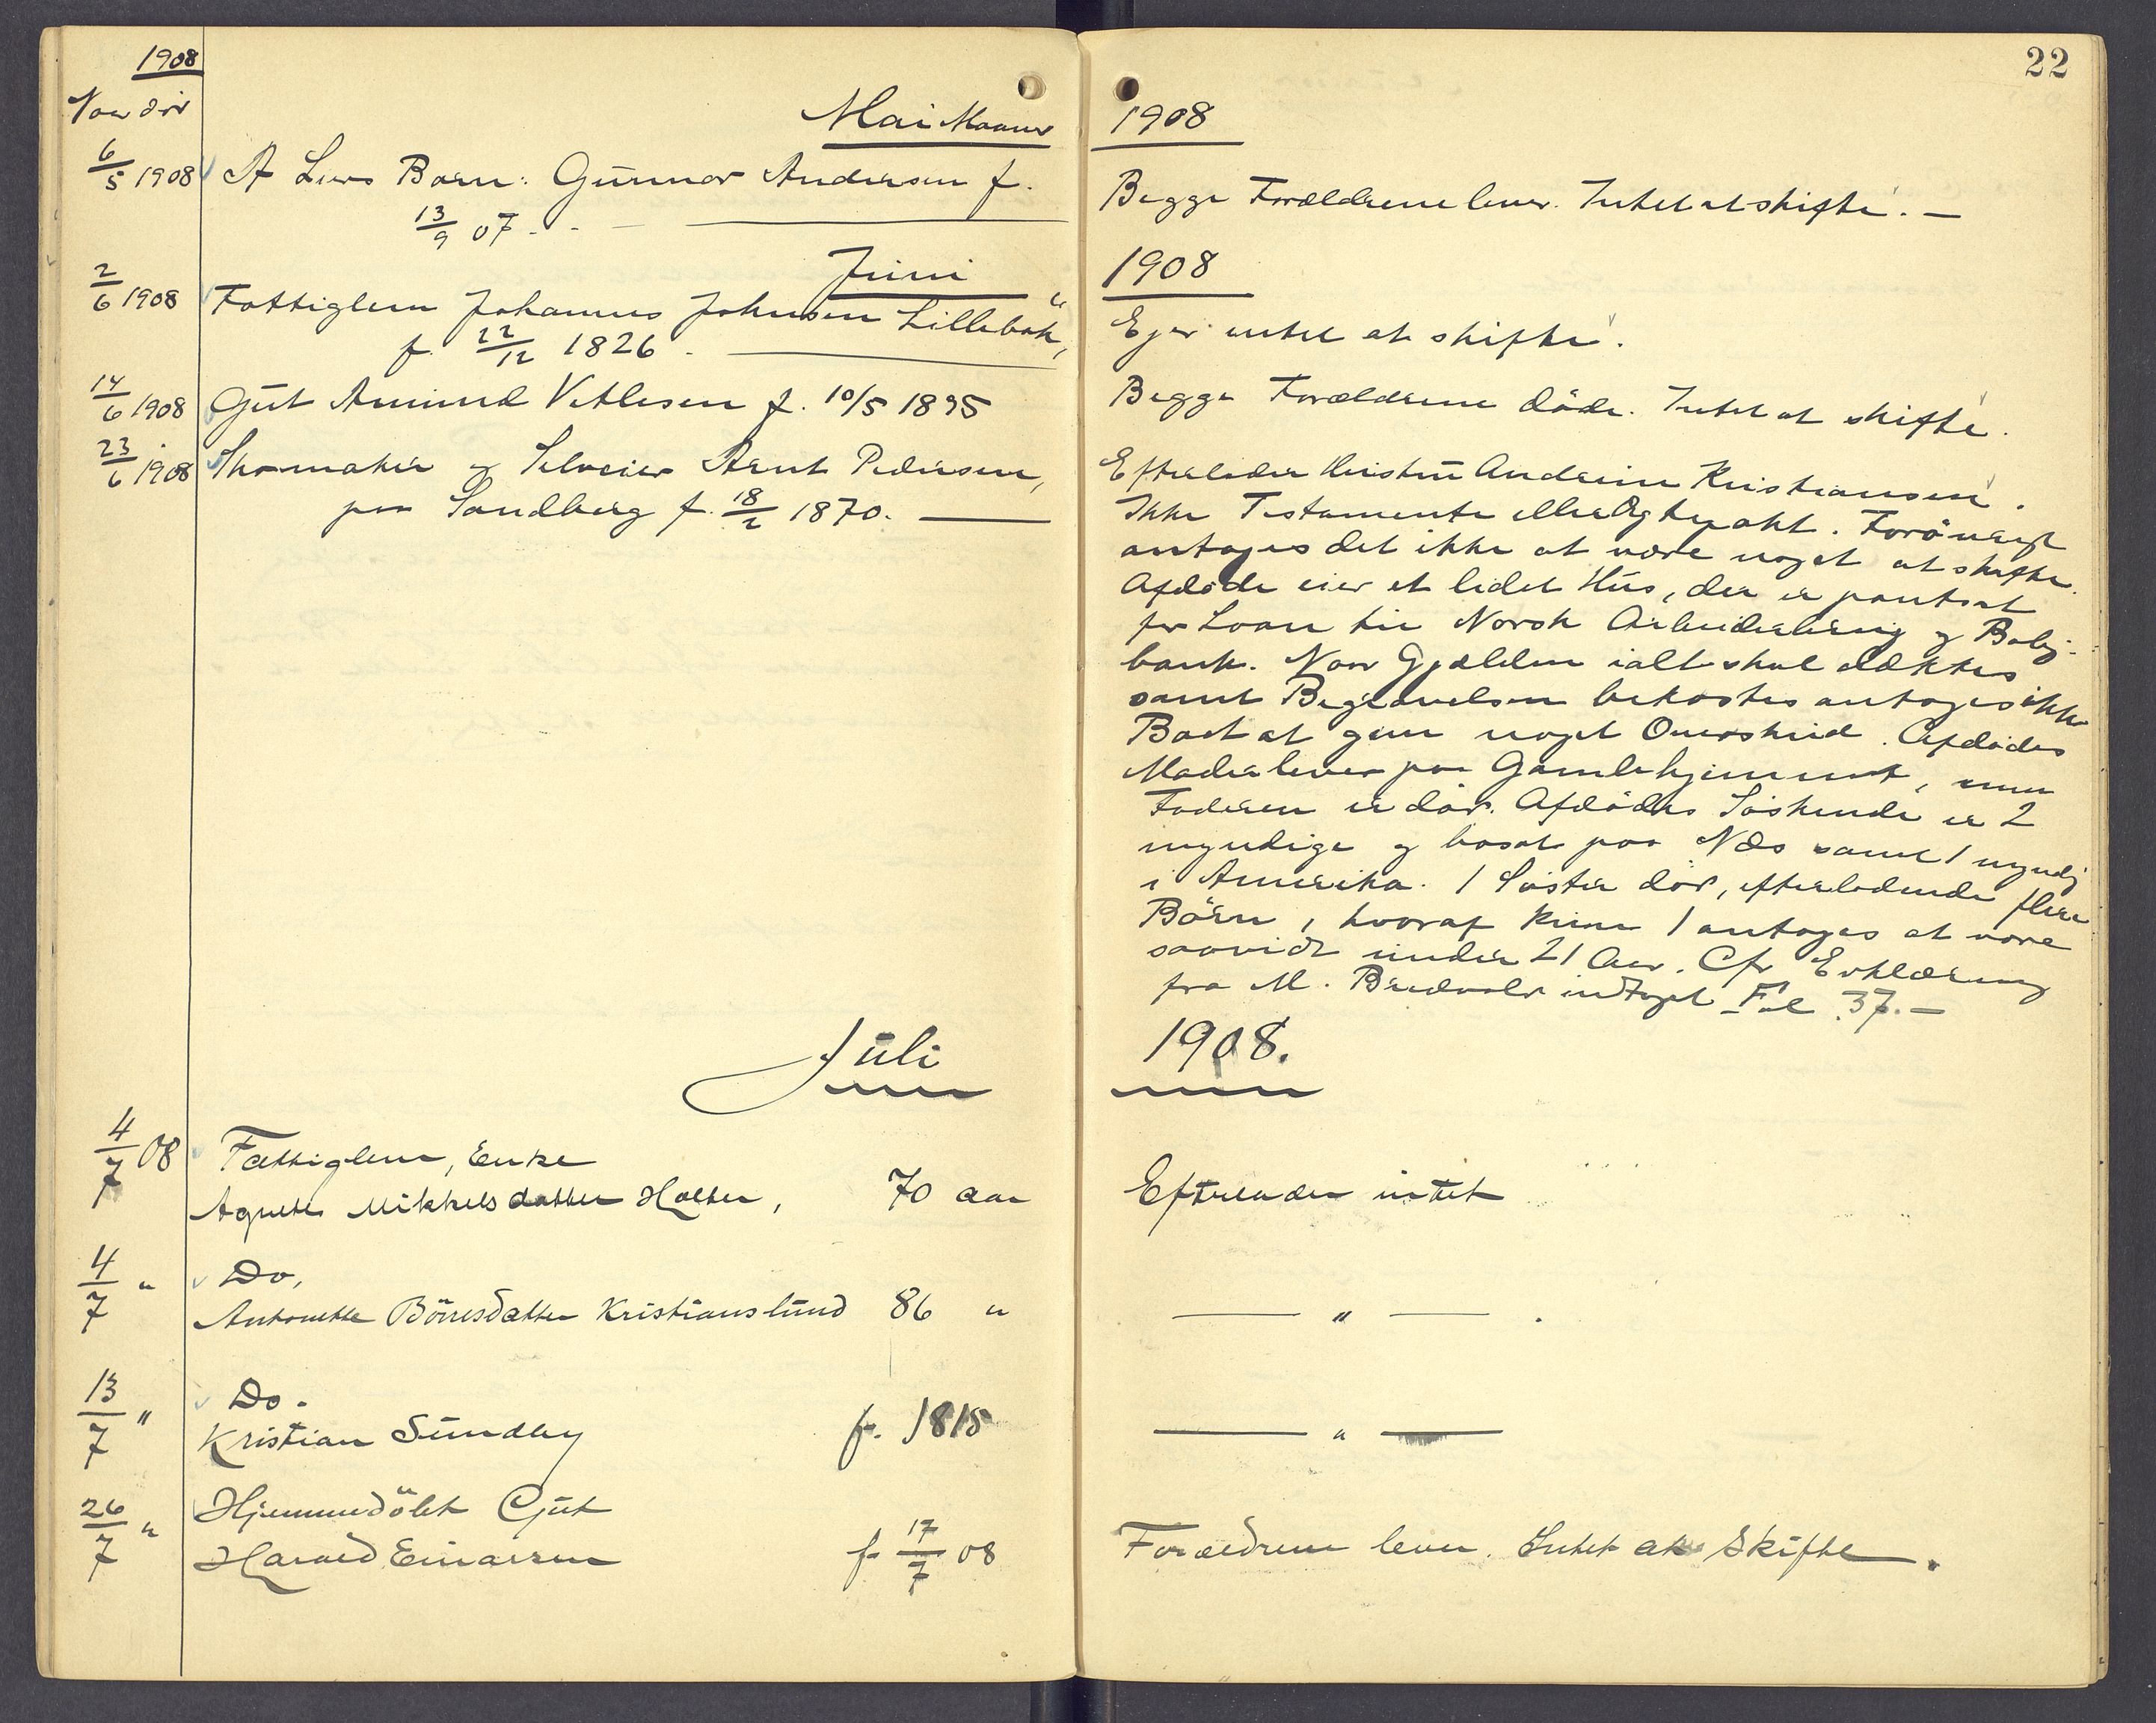 1908
Naar död
Mai Maaned
6/5 1908 Gunnar Andersen f.
13/9 07.
Juni
2/6 1908 Fattiglem Johannes Johnsen Lillebæk,
f. 22/12 1826.
14/6 1908 Gut Amund Vetlesen f. 10/5 1895
23/6 1908 Skomaker og Selveier Arnt Pedersen,
paa Sandberg f. 18/2 1870.
Juli
4/7 08 Fattiglem, Enke
Agnethe Mikkelsdatter Holter, 70 aar
4/7 " Do,
Antonette Börresdatter Kristianslund 86 "
13/7 " Do.
Kristian Sundby f. 1815
26/7 " Hjemmedöbt Gut
Harald Einarsen f. 17/7 08
22
1908
Begge Forældrene lever. Intet at skifte. —
1908
Ejer intet at skifte.
Begge Forældrene döde. Intet at skifte.
Efterlader Hustru Andrine Kristiansen.
Ikke Testamente eller Ægtepakt. Forövrigt
antages det ikke at være noget at skifte.
Afdöde eier et lidet Hus, der er pantsat
for Laan til Norsk Arbeiderbrug og Bolig-
bank. Naar Gjælden ialt skal dækkes
samt Begravelsen bekostes antages ikke
Boet at give noget Overskud. Afdödes
Moder lever paa Gamlehjemmet, men
Faderen er död. Afdödes Söskende er 2
myndige og bosat paa Næs samt 1 myndig
i Amerika. 1 Söster död, efterladende flere
Börn, hvoraf kun 1 antages at være
saavidt under 21 Aar. Cfr. Erklæring
fra M. Bredvold indtaget Fol. 37. —
1908.
Efterlader intet
— " — .
— " —
Forældrene lever. Intet at Skifte.